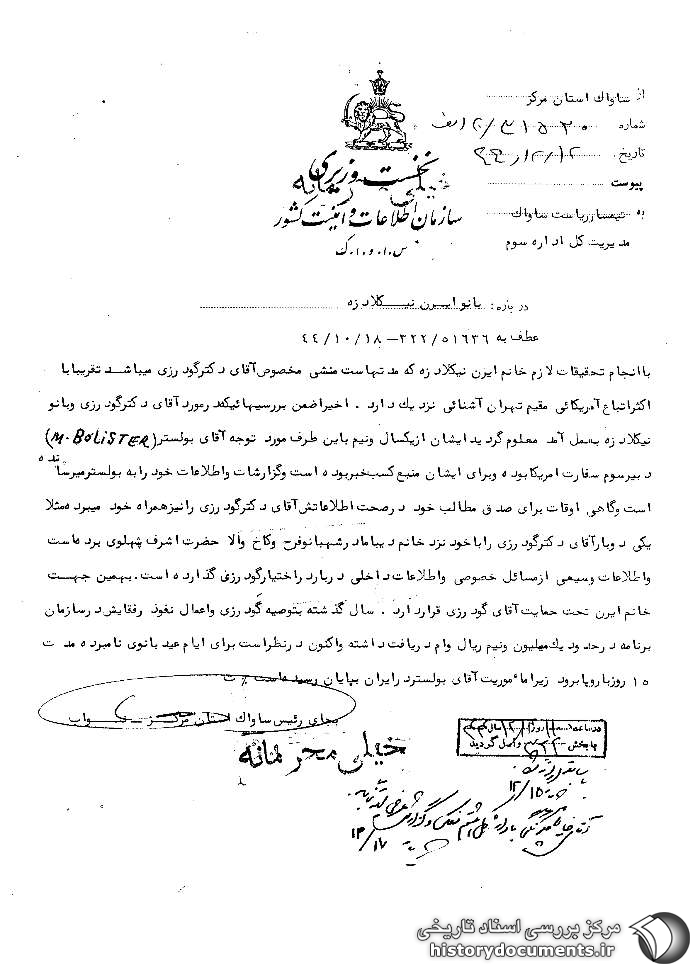 از ساواك استان مركز
شماره ۳۱۵۳۰/۲۰ الف
تاریخ
پیوست
نخست وزیری
سازمان اطلاعات و امنیت كشور
س.ا.و.ا.ك
به تیمسار ریاست ساواك
مدیریت كل اداره سوم
درباره: بانو ایرن نیكلادزه
عطف به ۳۲۲/۵۱۶۳۶-۴۴/۱۰/۱۸
با انجام تحقیقات لازم خانم ایرن نیكلادزه كه مدتهاست منشی مخصوص آقای دكترگودرزی میباشد تقریبا با
اكثر اتباع آمریكائی مقیم تهران آشنائی نزدیك دارد. اخیرا ضمن بررسیهائیكه در مورد آقای دكترگودرزی و بانو
نیكلادزه بعمل آمد معلوم گردید ایشان از یكسال و نیم باین طرف مورد توجه آقای بولستر (M.BOLISTER)
دبیر سوم سفارت امریكا بوده و برای ایشان منبع كسب خبر بوده است و گزارشات و اطلاعات خود را به بولستر میرسانده
است و گاهی اوقات برای صدق مطالب خود در صحت اطلاعاتش آقای دكترگودرزی را نیز همراه خود میبرده مثلا
یكی دوبار آقای دكترگودرزی را با خود نزد خانم دیبا مادر شهبانو فرح و كاخ والا حضرت اشرف پهلوی برده است
و اطلاعات وسیعی از مسائل خصوصی و اطلاعات داخلی دربار در اختیار گودرزی گذارده است. بهمین جهت
خانم ایرن تحت حمایت آقای گودرزی قرار دارد. سال گذشته بتوصیه گودرزی و اعمال نفوذ رفقایش در سازمان
برنامه در حدود یك میلیون و نیم ریال وام دریافت داشته و اكنون در نظر است برای ایام عید بانوی نامبرده مدت
۱۵ روز باروپا برود زیرا مأموریت آقای بولستر در ایران بپایان رسیده است
بجای رئیس ساواك استان مركز - نواب
خیلی محرمانه
واصل گردید
۱۲/۱۵
۱۲/۱۷
مركز بررسی اسناد تاریخی
historydocuments.ir